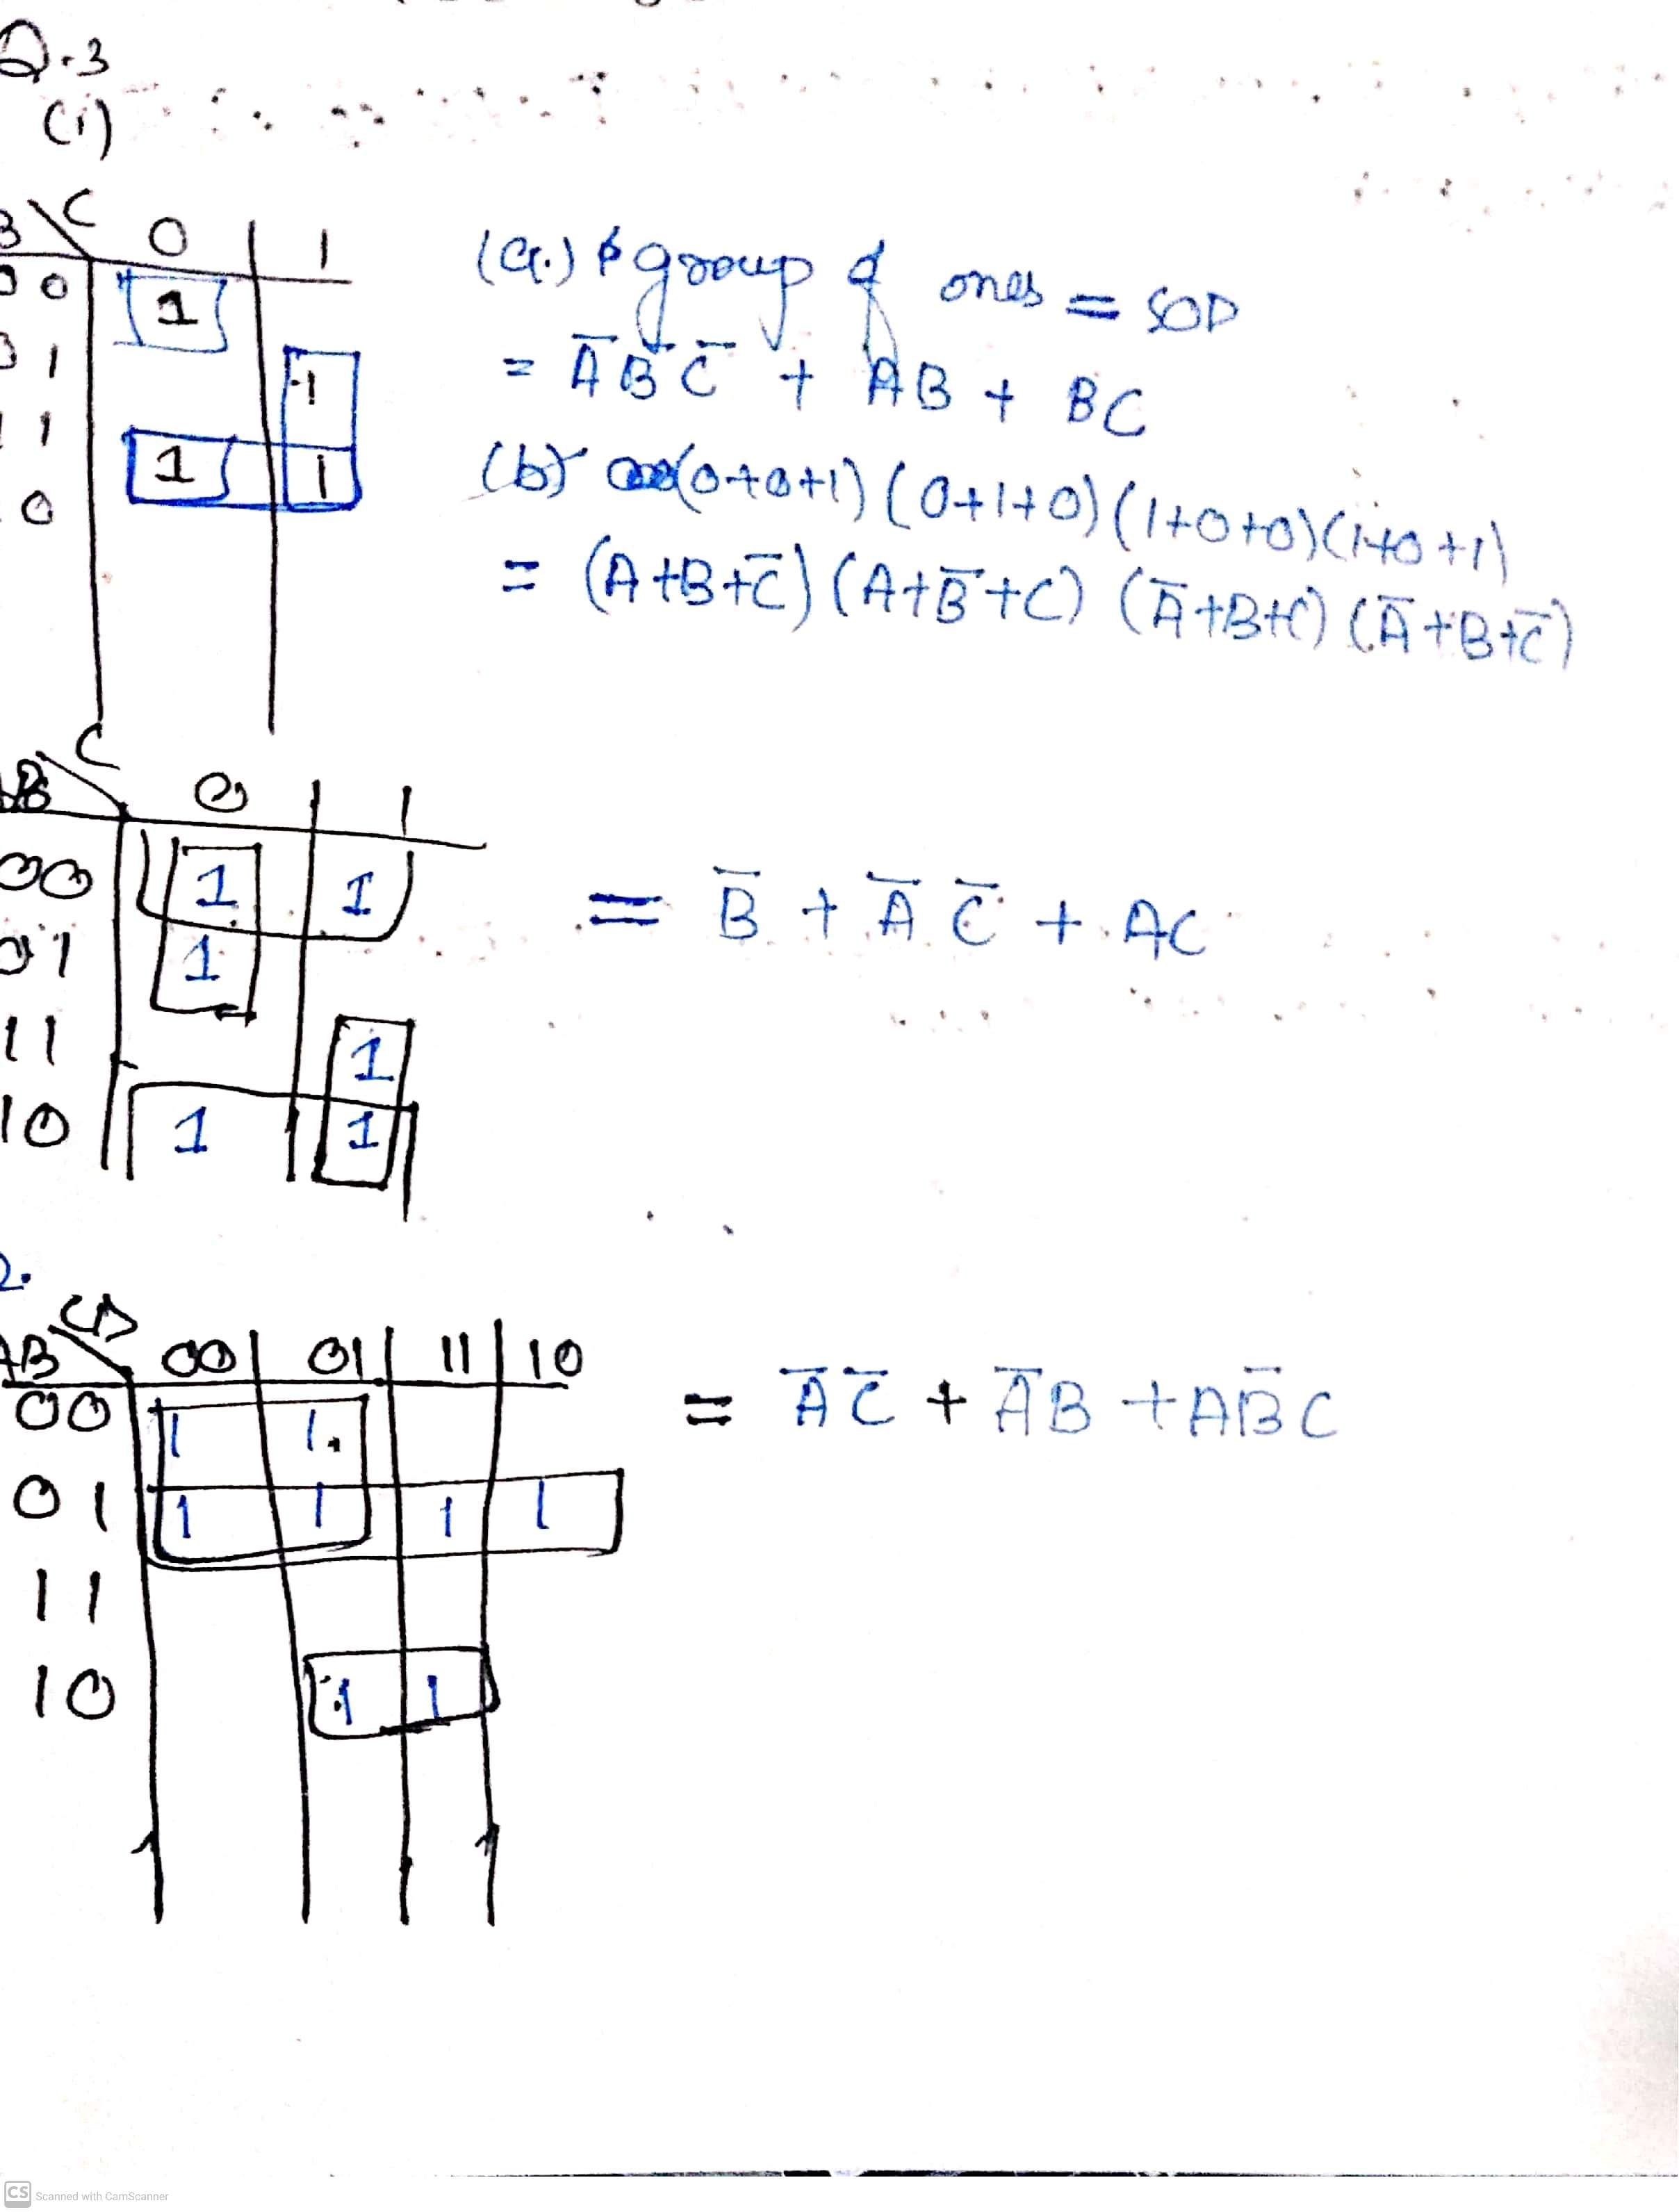 Q.3
(i)
B\C 0 1
00 1
01 1
11 1 1
10
(a.) group of ones = SOP
= A̅ B̅ C̅ + AB + BC
(b) (0+0+1) (0+1+0) (1+0+0) (1+0+1)
= (A+B+C̅) (A+B̅+C) (A̅+B+C) (A̅+B+C̅)
AB\C 0 1
00 1 1
01 1
11 1
10 1 1
= B̅ + A̅ C̅ + AC
2.
AB\CD 00 01 11 10
00 1 1
01 1 1 1 1
11
10 1 1
= A̅ C̅ + A̅B + AB̅C
CS Scanned with CamScanner